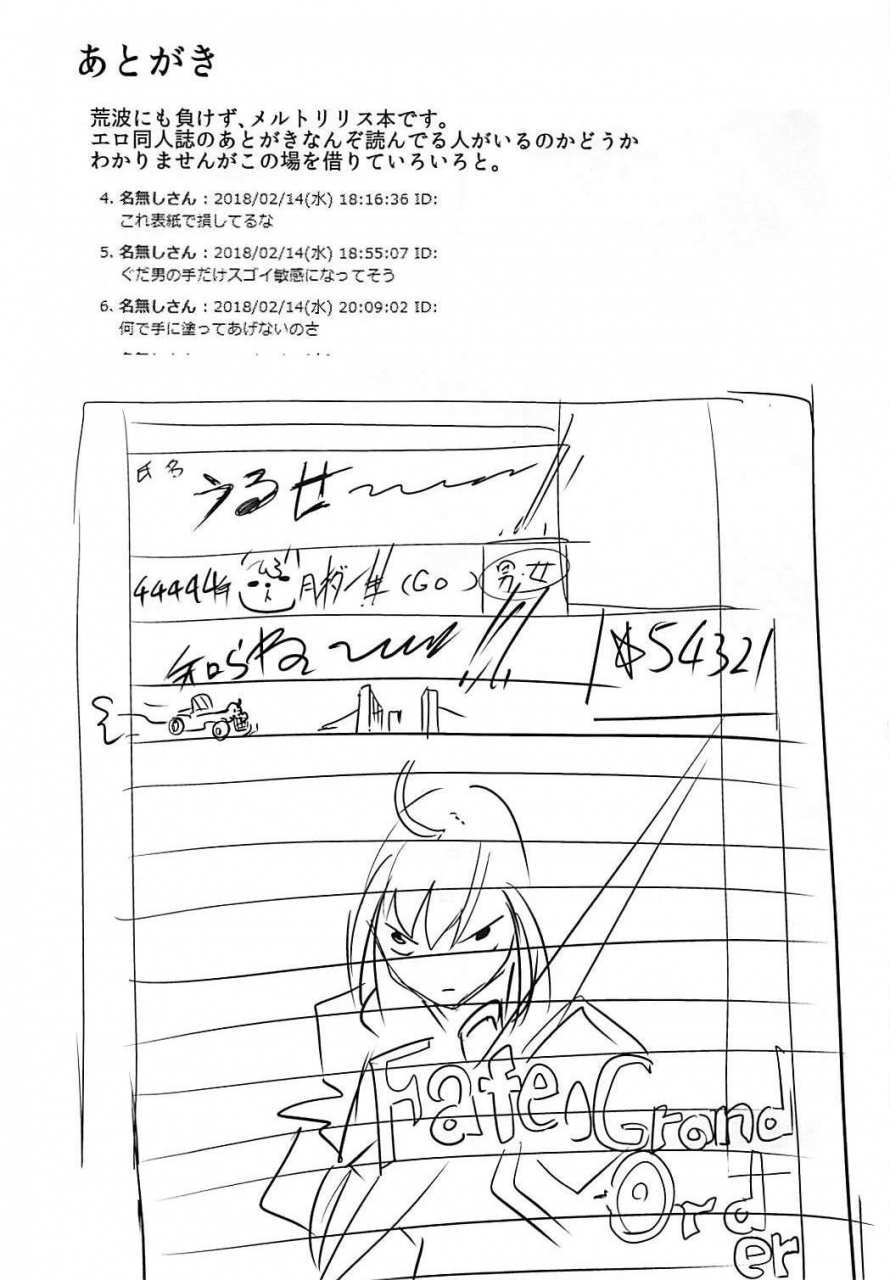 あとがき
荒波にも負けず、メルトリリス本です。
エロ同人誌のあとがきなんぞ読んでる人がいるのかどうか
わかりませんがこの場を借りていろいろと。
4. 名無しさん：2018/02/14(水) 18:16:36 ID:
これ表紙で損してるな
5. 名無しさん：2018/02/14(水) 18:55:07 ID:
ぐだ男の手だけスゴイ敏感になってそう
6. 名無しさん：2018/02/14(水) 20:09:02 ID:
何で手に塗ってあげないのさ
氏名
うるせ〜
44444年
月
(Go)
男・女
知らね〜
54321
Fate
Grand
Order